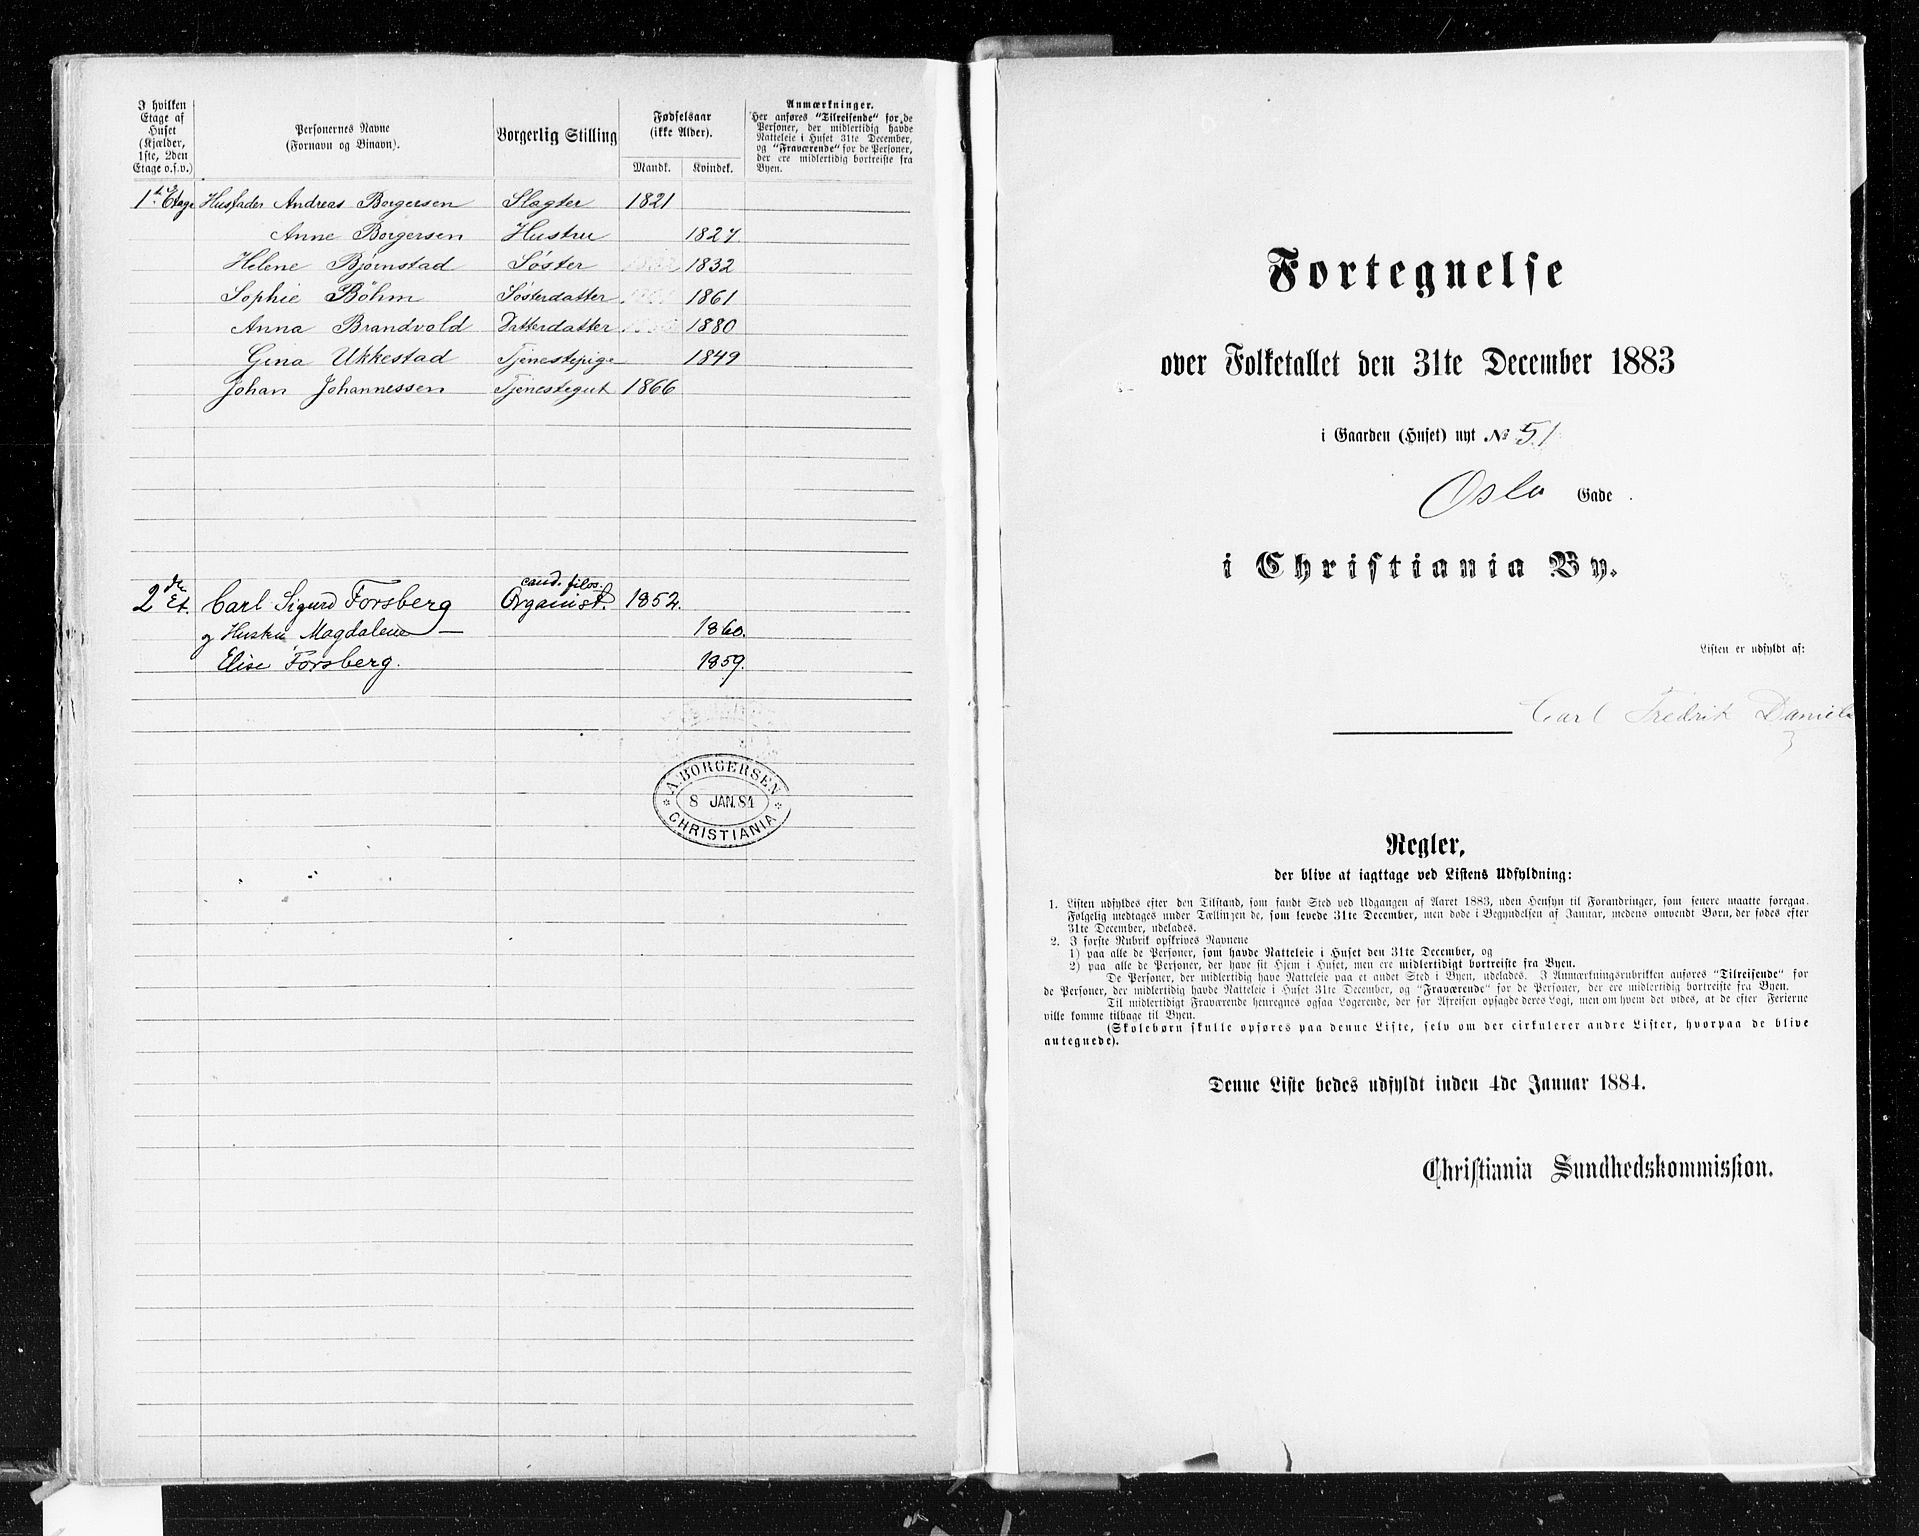 I hvilken
Etage af
Huset
(Kjælder,
1ste, 2den
Etage o.s.v.)
Personernes Navne
(Fornavn og Binavn).
Borgerlig Stilling
Fødselsaar
(ikke Alder).
Mandk. Kvindek.
Anmærkninger.
Her anføres "Tilreisende" for de
Personer, der midlertidig havde
Natteleie i Huset 31te December,
og "Fraværende" for de Personer,
der ere midlertidig bortreiste fra
Byen.
1ste Etage Husfader Andreas Borgersen Slagter 1821
Anne Borgersen Hustru 1827.
Helene Bjørnstad Søster 1832
Sophie Böhm Søsterdatter 1861
Anna Brandvold Datterdatter 1880
Gina Ukkestad Tjenestepige 1849
Johan Johannessen Tjenestegut 1866
cand. filos.
2de Et. Carl Sigurd Forsberg Organist. 1852.
og Hustru Magdalene — 1860.
Elise Forsberg. 1859.
A. BORGERSEN
8 JAN. 84
CHRISTIANIA
Fortegnelse
over Folketallet den 31te December 1883
i Gaarden (Huset) nyt № 51
Oslo Gade
i Christiania By.
Listen er udfyldt af:
Carl Fredrik Daniels
Regler,
der blive at iagttage ved Listens Udfyldning:
1. Listen udfyldes efter den Tilstand, som fandt Sted ved Udgangen af Aaret 1883, uden Hensyn til Forandringer, som senere maatte foregaa.
Følgelig medtages under Tællingen de, som levede 31te December, men døde i Begyndelsen af Januar, medens omvendt Børn, der fødes efter
31te December, udelades.
2. I første Rubrik opskrives Navnene
1) paa alle de Personer, som havde Natteleie i Huset den 31te December, og
2) paa alle de Personer, der have sit Hjem i Huset, men ere midlertidigt bortreiste fra Byen.
De Personer, der midlertidig have Natteleie paa et andet Sted i Byen, udelades. I Anmærkningsrubrikken anføres "Tilreisende" for
de Personer, der midlertidig havde Natteleie i Huset 31te December, og "Fraværende" for de Personer, der ere midlertidig bortreiste fra Byen.
Til midlertidigt Fraværende henregnes ogsaa Logerende, der før Afreisen opsagde deres Logi, men om hvem det vides, at de efter Ferierne
ville komme tilbage til Byen.
(Skolebørn skulle opføres paa denne Liste, selv om der cirkulerer andre Lister, hvorpaa de blive
antegnede).
Denne Liste bedes udfyldt inden 4de Januar 1884.
Christiania Sundhedskommission.